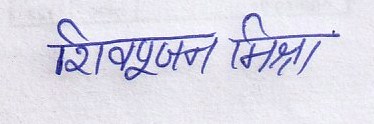 शिवपूजन मिश्रा